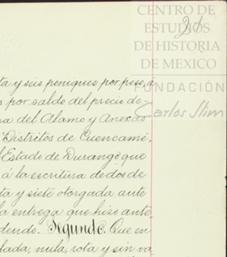 CENTRO DE
ESTUDIOS
DE HISTORIA
DE MEXICO
FUNDACIÓN
Carlos Slim
ta y seis peniques por peso, á
s por saldo del precio de
ra del Alamo y Anexas
Distritos de Cuencamé
l Estado de Durango que
á la escritura de dos de
ta y siete otorgada ante
la entrega que hizo ante
dende. Segundo. Que en
lada, nula, rota y sin va